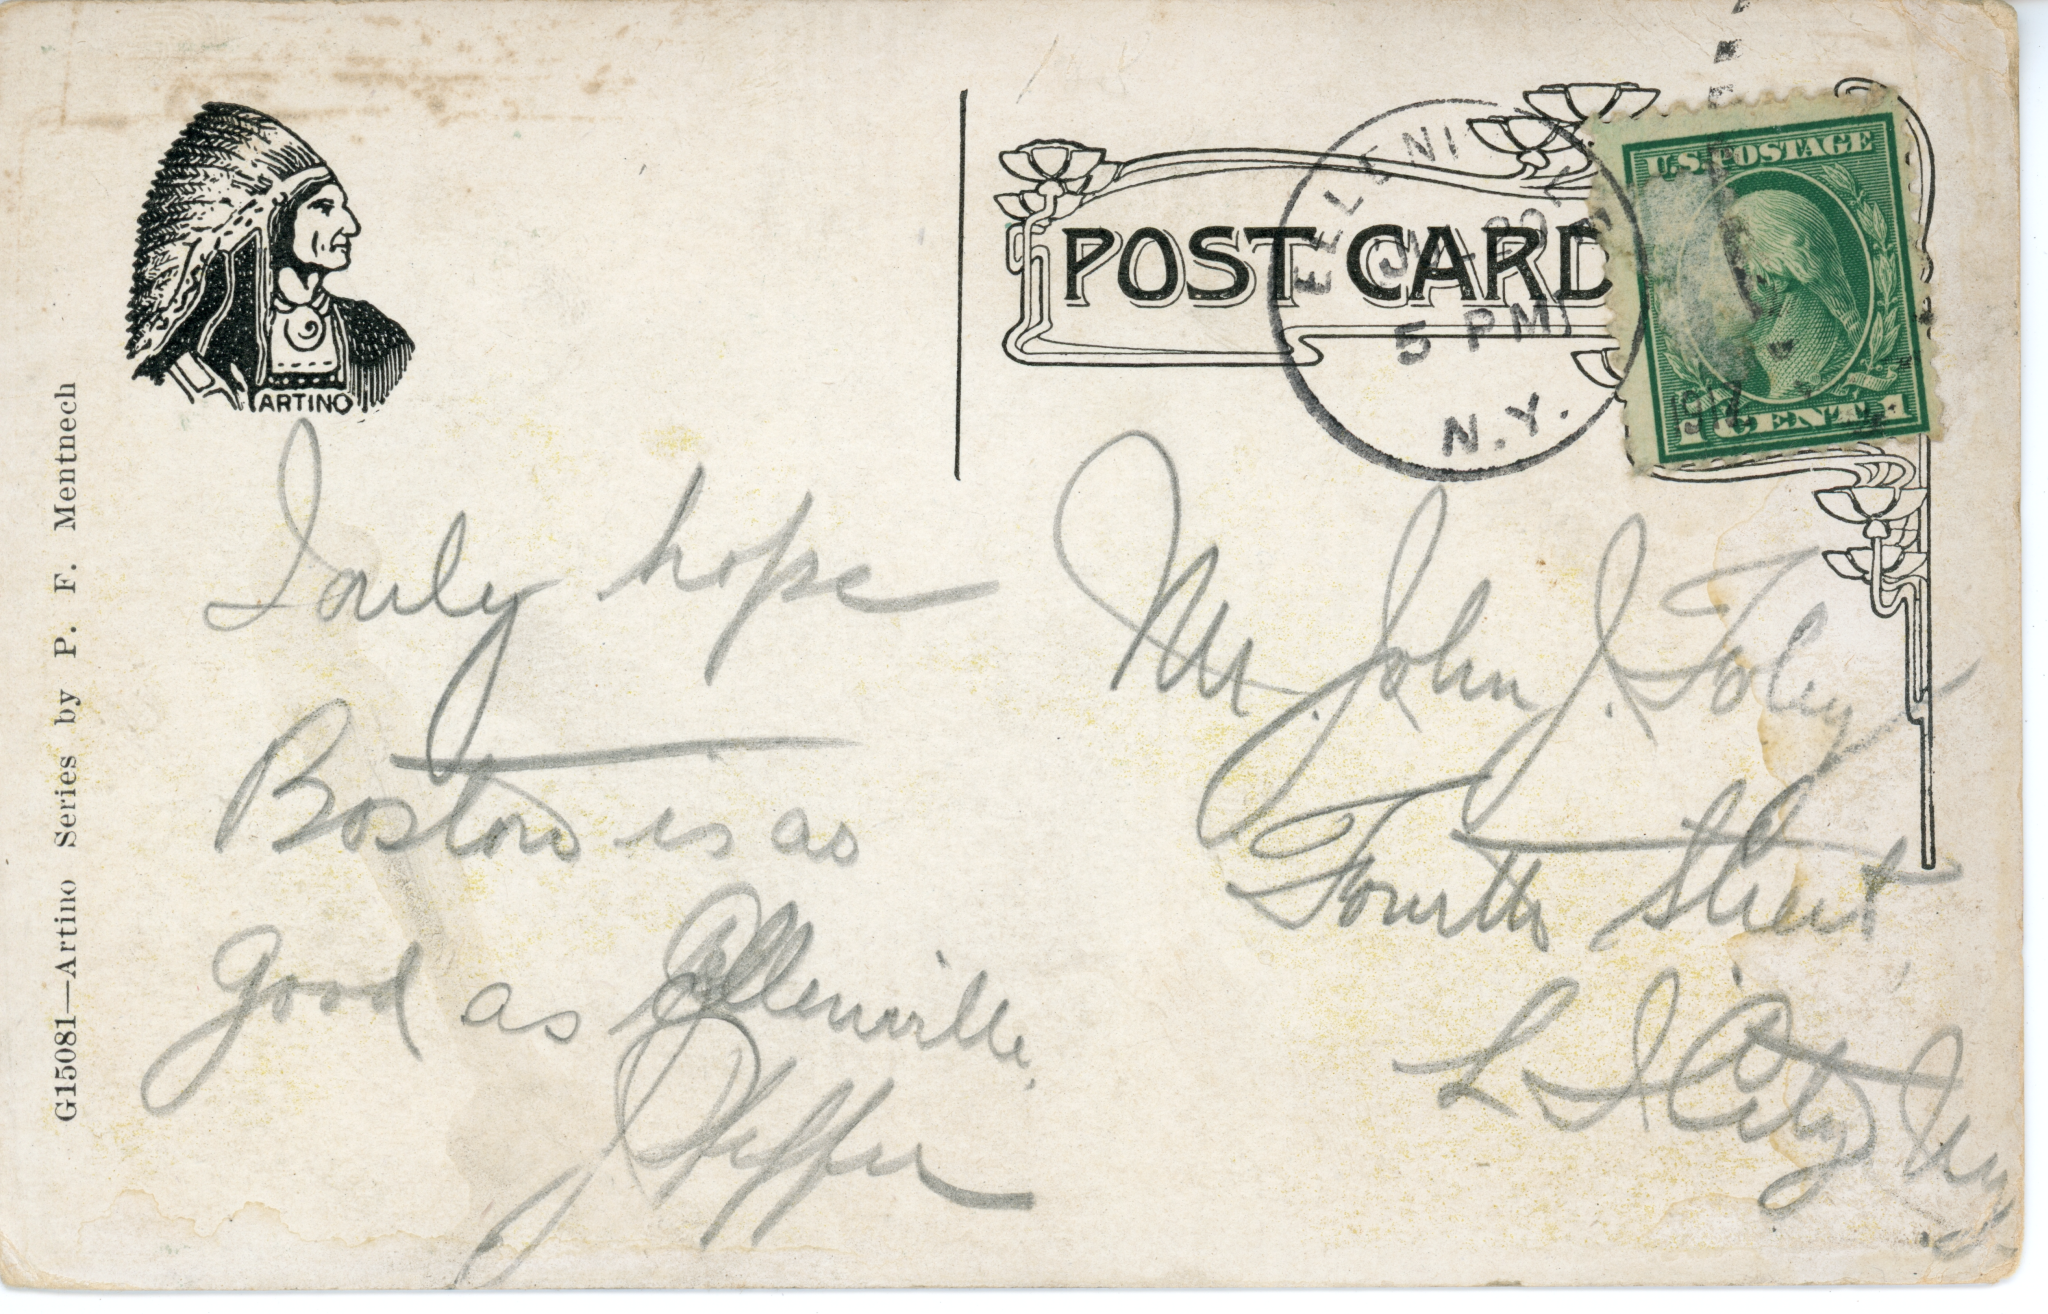 ARTINO
G15081—Artino Series by P. F. Mentnech
I only hope
Boston is as
good as Ellenville.
J Pfeffer
POST CARD
5 PM
N.Y.
U.S. POSTAGE
1 CENT 1
Mr. John J. Foley
Fourth Street
L I City